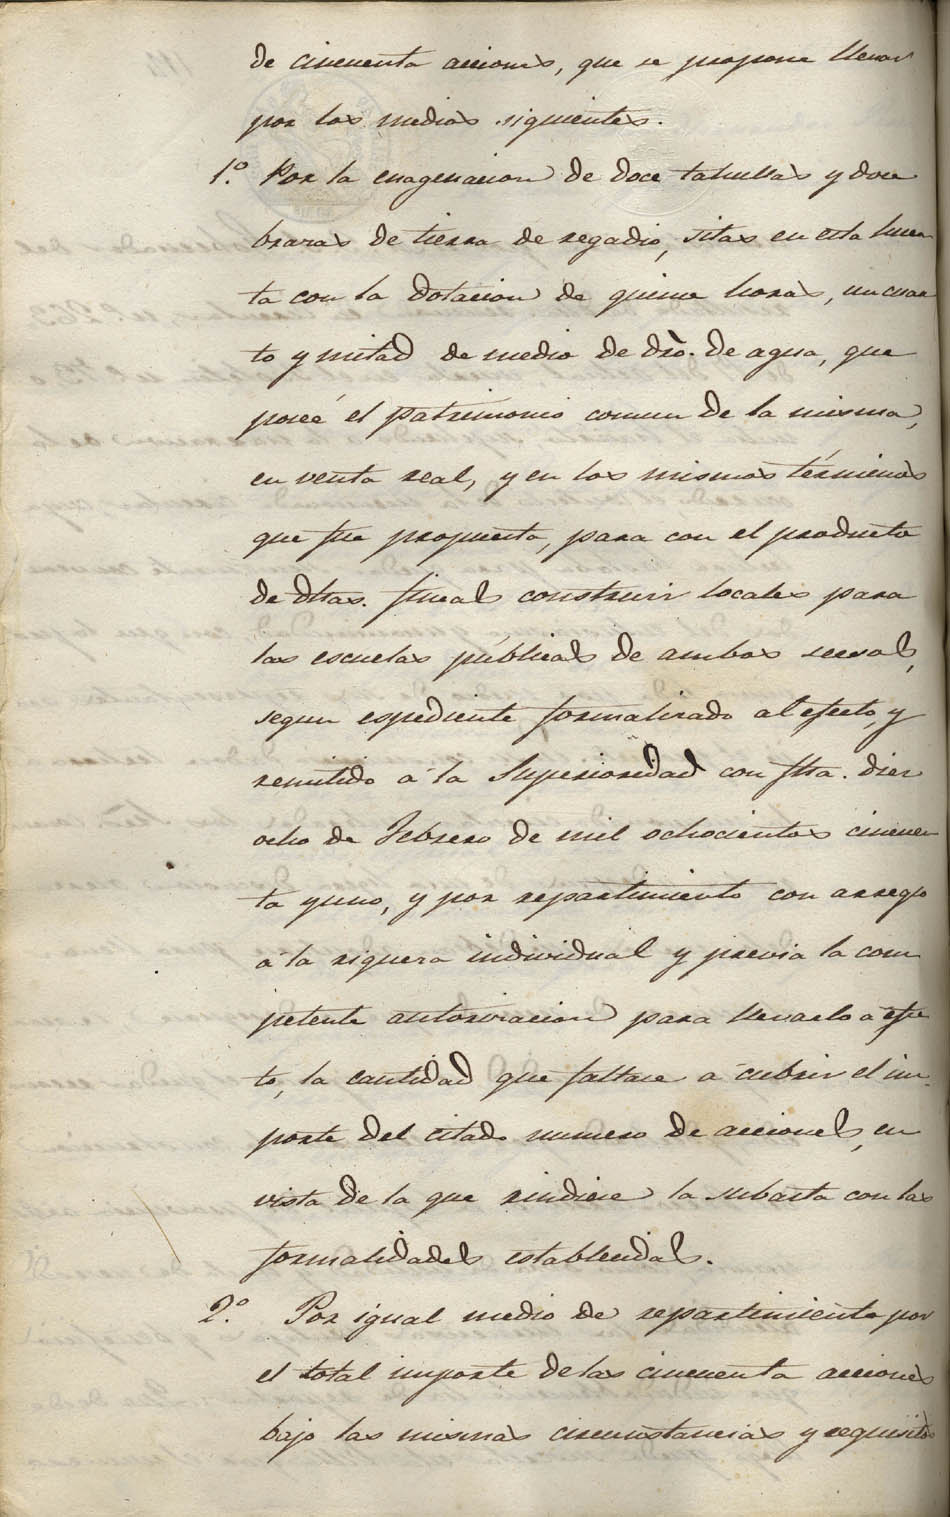 de cincuenta acciones, que se propone llenar
por los medios siguientes.
1º. Por la enagenacion de doce tahullas y doce
brazas de tierra de regadio, sitas en esta huer
ta con la dotacion de quince horas, un cuar
to y mitad de medio de dró. de agua, que
poseé el patrimonio comun de la misma,
en venta real, y en los mismos términos
que fue propuesta, para con el producto
de dhas. fincas construir locales para
las escuelas públicas de ambos secsos,
segun espediente formalizado al efecto, y
remitido á la Superioridad con fha. diez
ocho de Febrero de mil ochocientos cincuen
ta y uno, y por repartimiento con arreglo
á la riqueza individual y previa la com
petente autorizacion para llevarlo a efec
to, la cantidad que faltase á cubrir el im-
porte del citado numero de acciones, en
vista de la que rindiese la subasta con las
formalidades establecidas.
2º. Por igual medio de repartimiento por
el total importe de las cincuenta acciones
bajo las mismas circunstancias y requisitos